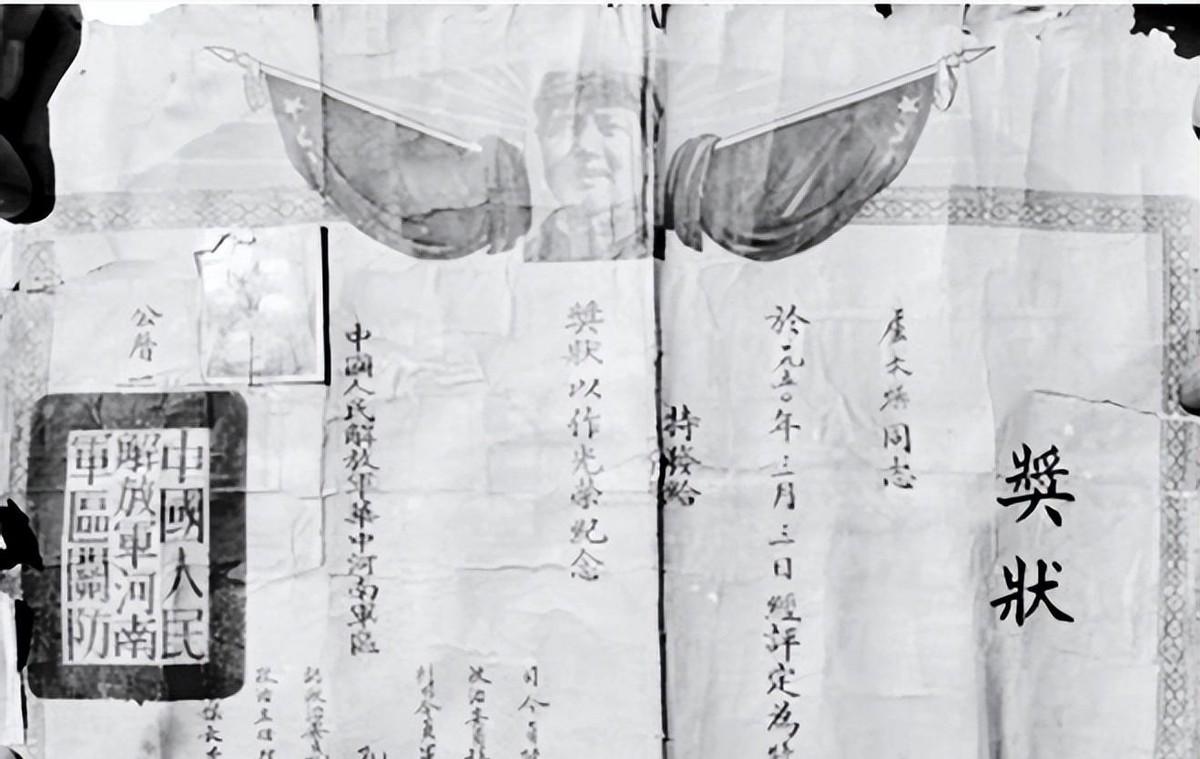 獎狀
同志
於一九五〇年三月三日經評定為特
特發給
獎狀以作光榮紀念
中國人民解放軍華中河南軍區
司令員
政治委員
副司令員
副政治委員
政治主任
謀長
公曆一
中國人民
解放軍河南
軍區關防